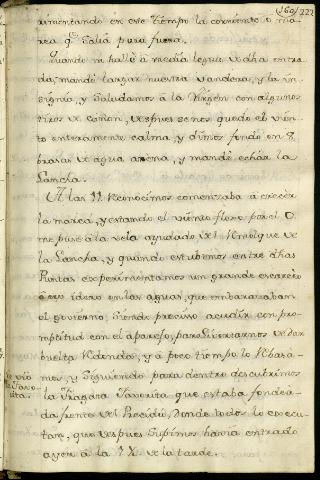 160/222
rimentando en este tiempo la corriente o ma-
rea qᵉ salia para fuera.
Quando me hallè à media legua de dha entra
da, mandè largar nuestra vandera, y la in-
signia, y saludamos à la Virgen con algunos
tiros de cañon, despues se nos quedo el vien
to enteramente calma, y dimos fondo en 8.
brasas de agua arena, y mandè echar la
Lancha.
A las 11 reconocimos comenzaba à crecèr
la marea, y estando el viento floxo por el O.
me puse à la vela ayudado del remolque de
la Lancha, y quando estubimos entre dhas
Puntas experimentamos un grande escarceo
en las aguas, que embarazaban
el govierno, siendo preciso acudir con prom-
ptitud con el aparejo, para livertarnos de dar
buelta redonda, y à poco tiempo lo rebasa-
mos, y siguiendo para dentro descubrimos
la Fragata Favorita que estaba fondea-
da frente del Presidio, donde todos lo execu-
tan, que despues supimos havia entrado
ayer à la 1 de la tarde.
Se viò
la Favo-
rita.